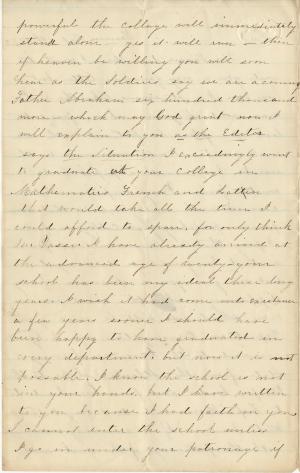 powerful the College will immediately
stand alone yes it will run - then
if heaven be willing you will soon
hear as the Soldiers say we are a coming
Father Abraham six hundred thousand
more - which may God grant now I
will explain to you as the Editor
says the Situation I exceedingly want
to graduate your College in
Mathematics French and Latin
that would take all the time I
could afford to spare, for only think
I have already arrived at
the advanced age of twenty-four
school has been my ideal these long
years. I wish it had come into existence
a few years sooner I should have
been happy to have graduated in
every department, but now it is not
possable, I know the school is not
in your hands, but I have written
to you because I had faith in you
I cannot enter the school unless
I go in under your patronage if